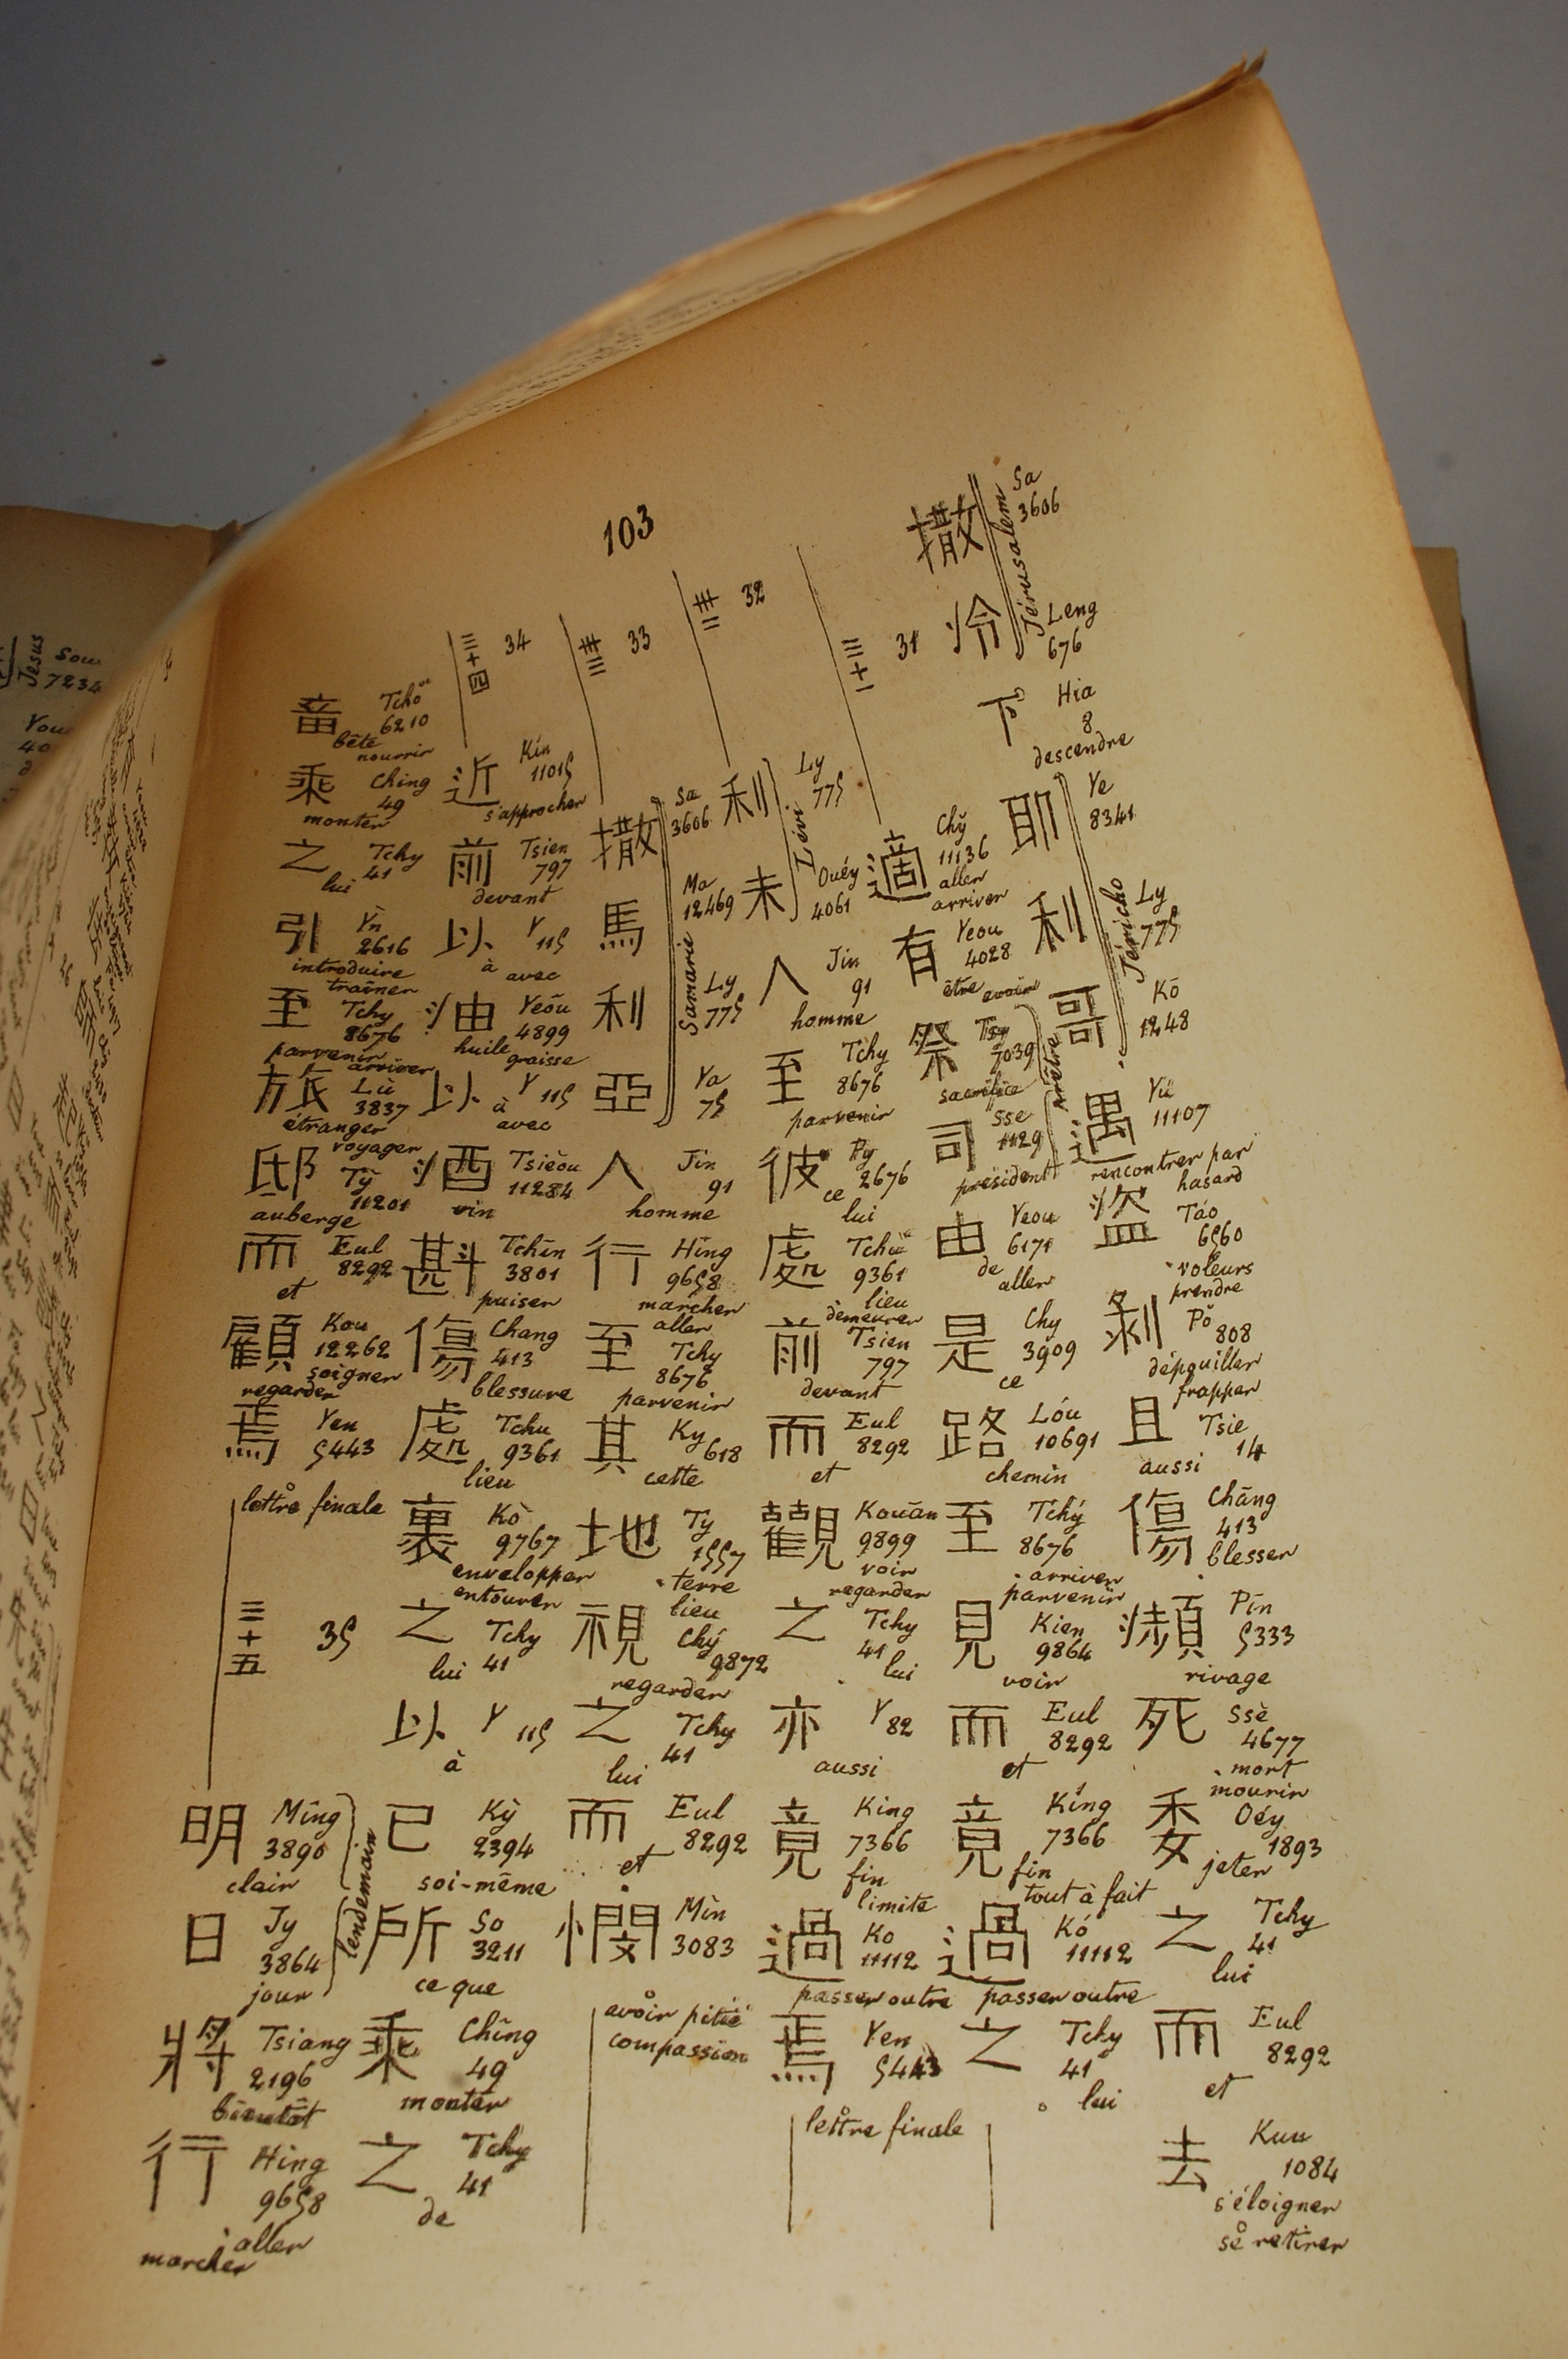 103
撒 Sa 3606
冷 Leng 676
Jérusalem
下 Hia 8 descendre
耶 Ye 8341
利 Ly 775
哥 Kō 1248
Jéricho
遇 Yú 11107 rencontrer par hasard
盜 Táo 6560 voleurs prendre
剥 Pŏ 808 dépouiller frapper
且 Tsie 14 aussi
傷 Chāng 413 blesser
瀕 Pīn 5333 rivage
死 Ssè 4677 mort mourir
委 Oéy 1893 jeter
之 Tchy 41 lui
而 Eul 8292 et
去 Kuu 1084 s'éloigner se retirer
三十一 31
適 Chy̆ 11136 aller arriver
有 Yeou 4028 être avoir
祭 Tsy 7039 sacrifice
司 Sse 1129 président
prêtre
由 Yeou 6171 de aller
是 Chy 3909 ce
路 Lóu 10691 chemin
至 Tchý 8676 arriver parvenir
見 Kien 9864 voir
而 Eul 8292 et
竟 Kíng 7366 fin tout à fait
過 Kó 11112 passer outre
之 Tchy 41 lui
卅二 32
利 Ly 775
未 Ouéy 4061
Lévi
人 Jin 91 homme
至 Tchy 8676 parvenir
彼 Py 2676 ce lui
處 Tchu 9361 lieu demeurer
前 Tsien 797 devant
而 Eul 8292 et
觀 Kouān 9899 voir regarder
之 Tchy 41 lui
亦 Y 82 aussi
竟 King 7366 fin limite
過 Ko 11112 passer outre
焉 Yen 5443 lettre finale
卅三 33
撒 Sa 3606
馬 Ma 12469
利 Ly 775
亞 Ya 75
Samarie
人 Jin 91 homme
行 Hîng 9658 marcher aller
至 Tchy 8676 parvenir
其 Ky 618 cette
地 Ty 1557 terre lieu
視 Chý 9872 regarder
之 Tchy 41 lui
而 Eul 8292 et
憫 Mìn 3083 avoir pitié compassion
三十四 34
近 Kín 11015 s'approcher
前 Tsien 797 devant
以 Y 115 à avec
油 Yeôu 4899 huile graisse
以 Y 115 à avec
酒 Tsieòu 11284 vin
斟 Tchīn 3801 puiser
傷 Chang 413 blessure
處 Tchu 9361 lieu
裹 Kò 9767 envelopper entourer
之 Tchy 41 lui
以 Y 115 à
己 Kỳ 2394 soi-même
所 So 3211 ce que
乘 Chîng 49 monter
之 Tchy 41 de
畜 Tchŏ 6210 bête nourrir
乘 Ching 49 monter
之 Tchy 41 lui
引 Yn 2616 introduire traîner
至 Tchy 8676 parvenir arriver
旅 Lù 3837 étranger voyager
邸 Tỳ 11201 auberge
而 Eul 8292 et
顧 Kou 12262 soigner regarder
焉 Yen 5443 lettre finale
三十五 35
明 Mîng 3890 clair
日 Jy 3864 jour
lendemain
將 Tsiang 2196 bientôt
行 Hîng 9658 aller marcher
Jesus
7234